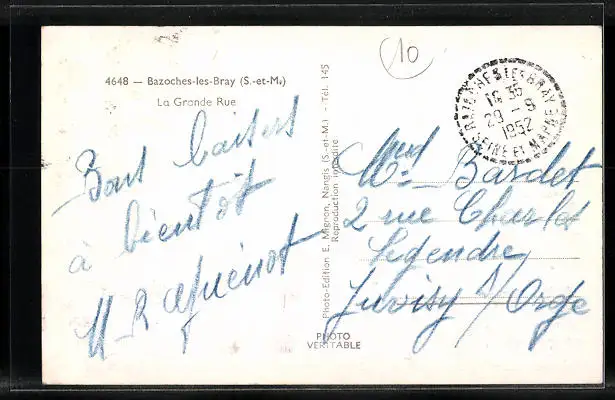 4648 — Bazoches-les-Bray (S.-et-M.)
La Grande Rue
10
BAZOCHES LES BRAY
16 35
29 - 8
1952
SEINE ET MARNE
Bons baisers
à bientôt
M Raguénot
Photo-Edition E. Mignon, Nangis (S.-et-M.) - Tél. 145
Reproduction interdite
Bardet
2 rue Charles
Legendre
Juvisy s/Orge
PHOTO
VERITABLE